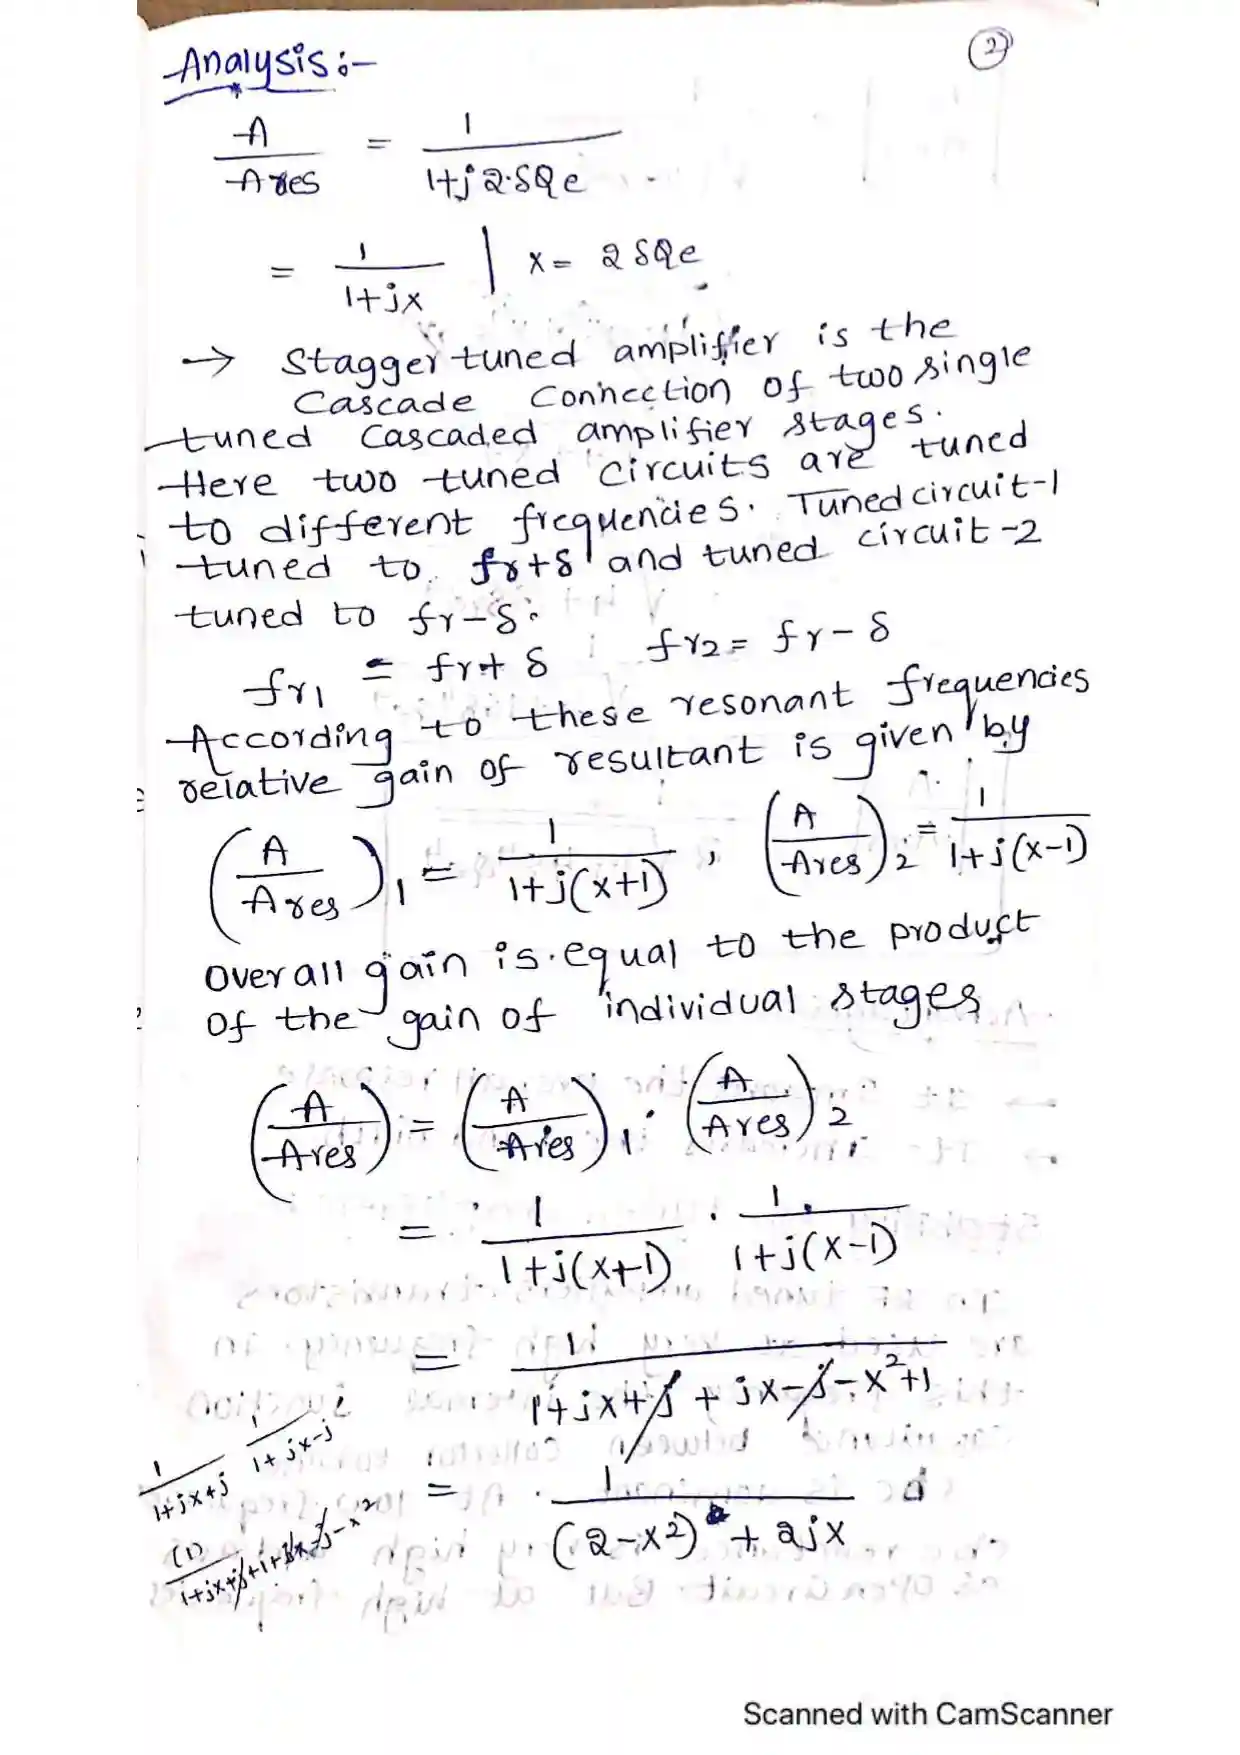 2
Analysis:-
A/Ares = 1/(1+j2·δQe)
= 1/(1+jx) | x = 2δQe
→ Stagger tuned amplifier is the
Cascade Connection of two single
tuned Cascaded amplifier stages.
Here two tuned circuits are tuned
to different frequencies. Tuned circuit-1
tuned to fr+δ and tuned circuit-2
tuned to fr-δ.
fr1 = fr+δ fr2 = fr-δ
According to these resonant frequencies
relative gain of resultant is given by
(A/Ares)1 = 1/(1+j(x+1)) , (A/Ares)2 = 1/(1+j(x-1))
Overall gain is equal to the product
of the gain of individual stages
(A/Ares) = (A/Ares)1 · (A/Ares)2
= 1/(1+j(x+1)) · 1/(1+j(x-1))
= 1/(1+jx+j+jx-j-x²+1)
1/(1+jx+j) 1/(1+jx-j)
= 1/((2-x²)+2jx)
Scanned with CamScanner